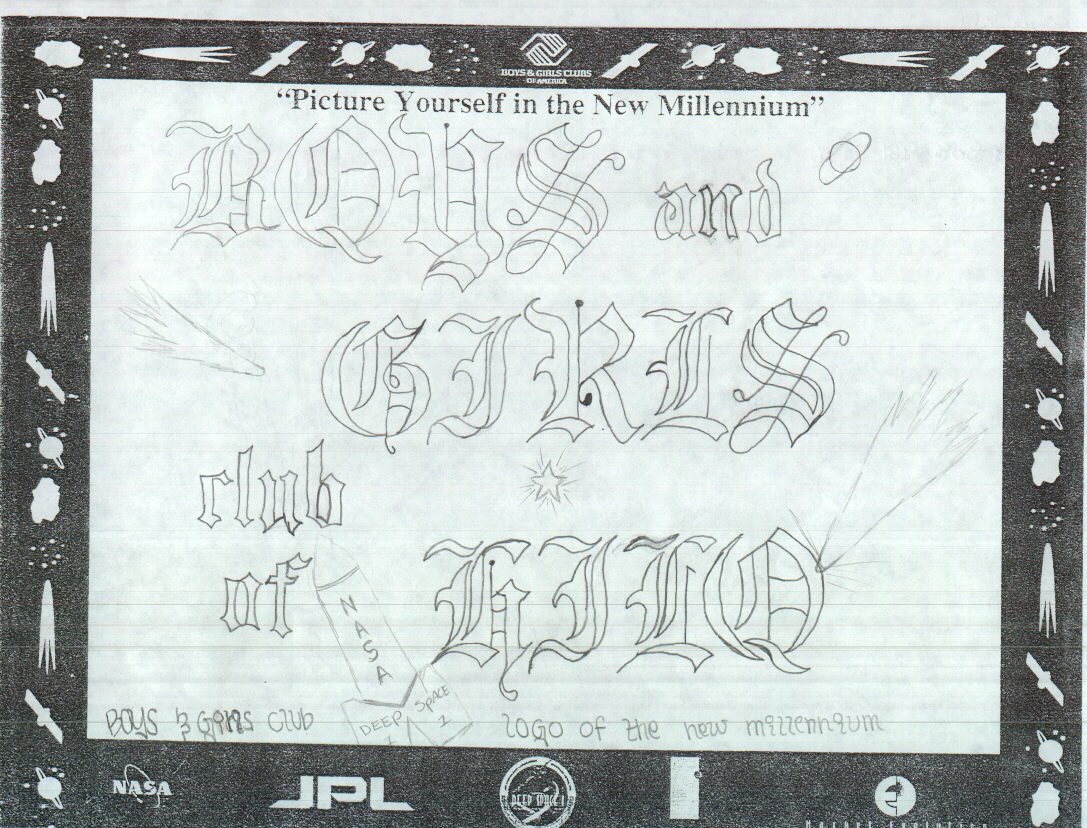 BOYS & GIRLS CLUBS
OF AMERICA
“Picture Yourself in the New Millennium”
BOYS and
GIRLS
club
of HILO
NASA
DEEP SPACE
1 1
BOYS & GIRLS Club
logo of the new millennium
NASA
JPL
DEEP SPACE 1